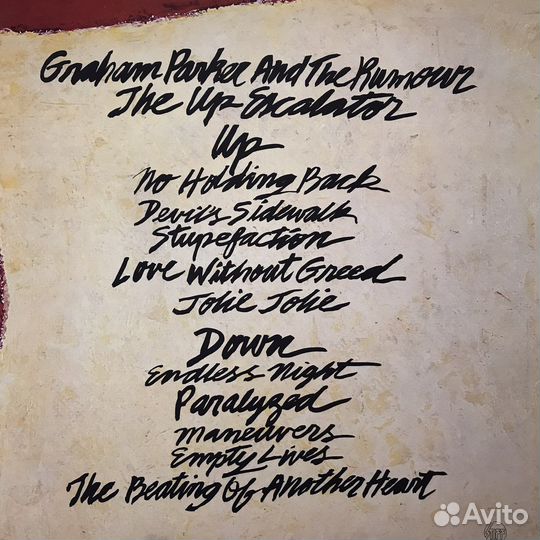 Graham Parker And The Rumour
The Up Escalator
Up
No Holding Back
Devil's Sidewalk
Stupefaction
Love Without Greed
Jolie Jolie
Down
Endless Night
Paralyzed
Maneuvers
Empty Lives
The Beating Of Another Heart
Avito